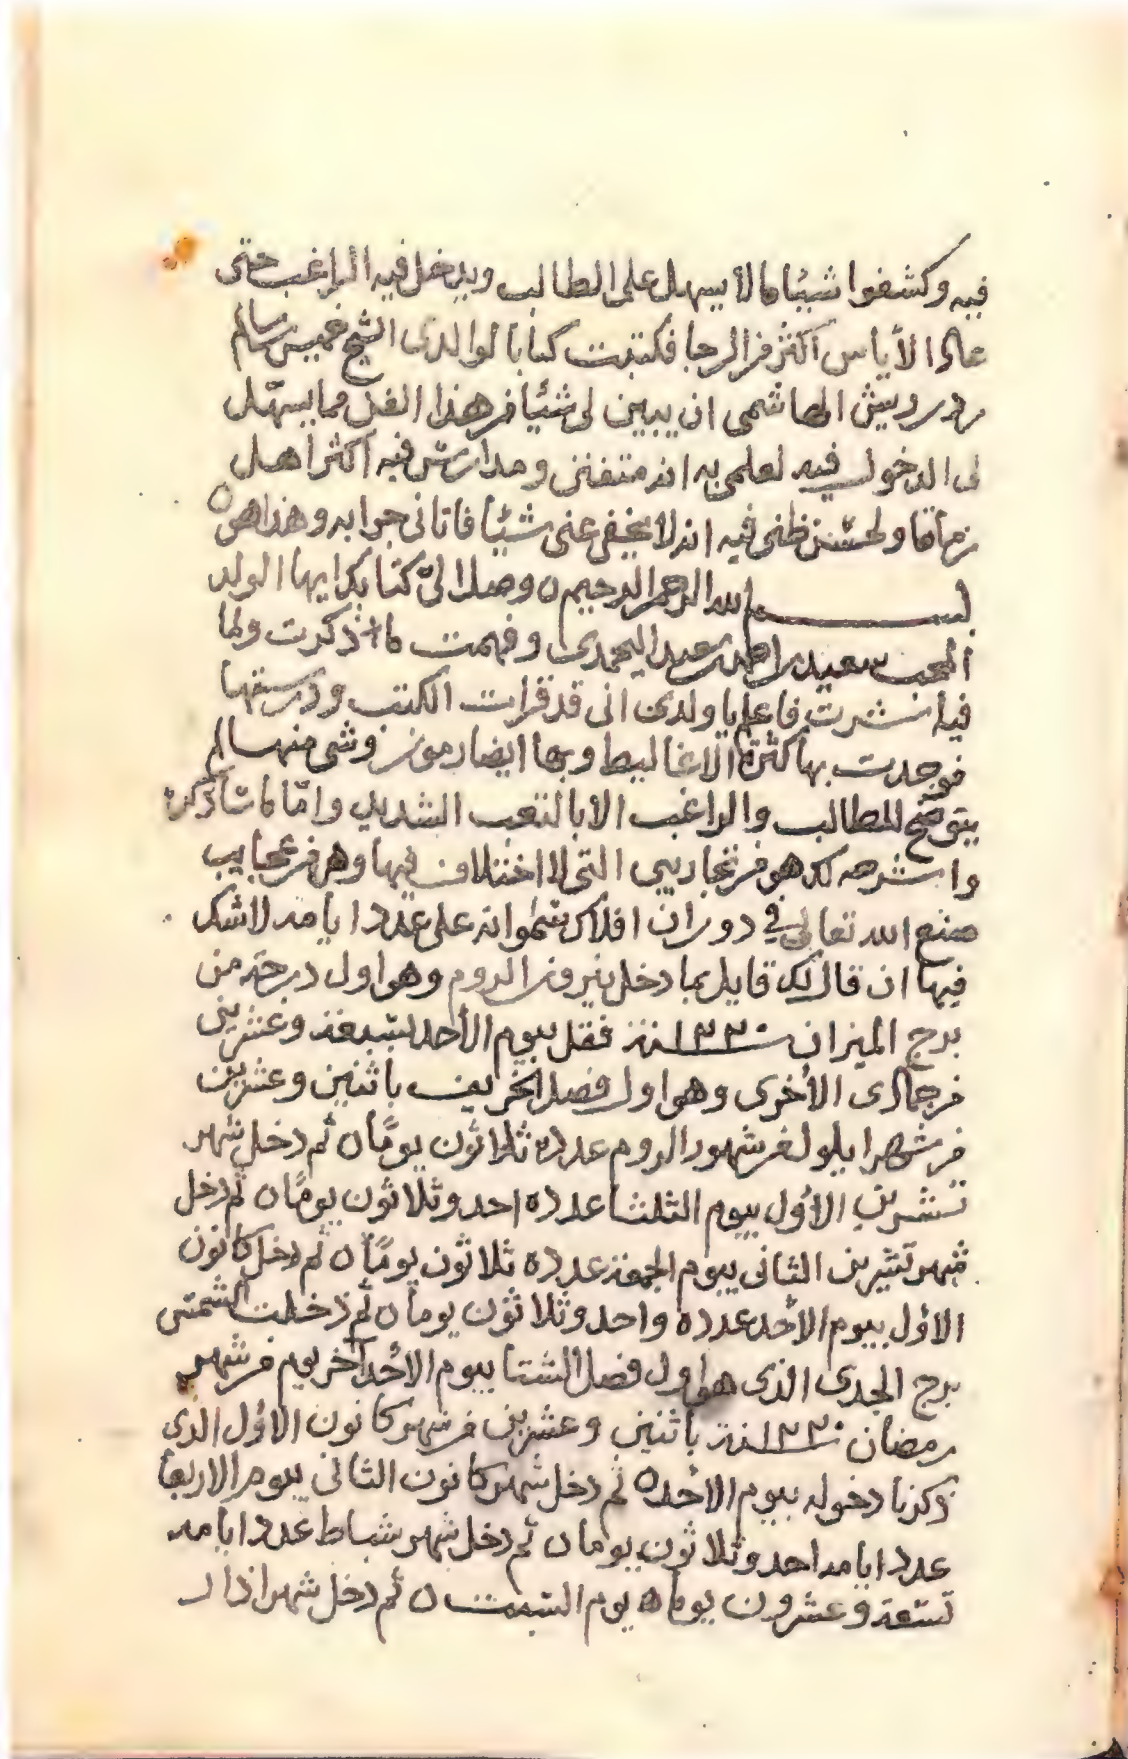 فيه وكشفوا شيئا ما لا يسهل على الطالب ويدخل فيه الراغب حتى
عاد الأياس أكثر من الرجا فكتبت كتابا لوالدي الشيخ خميس بن سالم
بن درويش الهاشمي ان يبين لي شيئا من هذا الفن مما يسهّل
لي الدخول فيه لعلمي به انه متفنن وممارس فيه أكثر اهل
زماننا ولحسن ظني فيه انه لا يخفي عني شيئا فاتاني جوابه وهذا هو ه
بسم الله الرحمن الرحيم ه وصل اليّ كتابك ايها الولد
المحب سعيد بن احمد بن سعيد اليحمدي وفهمت ما ذكرت ولما
فيه نشرت فاعلم يا ولدي اني قد قرات الكتب ودرستها
فوجدت بها كثرة الاغاليط وبها ايضا رموز وشي منها لم
يتوضح للطالب والراغب الا بالتعب الشديد وامّا ما سأذكره
واشرحه لك هو من تجاريبي التي لا اختلاف فيها وهو من عجايب
صنع الله تعالى في دوران افلاك سمواته على عدد ايامه لا شك
فيها ان قال لك قايل بما دخل نيروز الروم وهو اول درجة من
برج الميزان سنة ١٣٣٠ فقل بيوم الأحد لسبعة وعشرين
من جمادى الأخرى وهو اول فصل الخريف باثنين وعشرين
من شهر ايلول من شهور الروم عدده ثلاثون يومًا ه ثم دخل شهر
تشرين الأول بيوم الثلثا عدده احد وثلاثون يومًا ه ثم دخل
شهر تشرين الثاني بيوم الجمعة عدده ثلاثون يومًا ه ثم دخل كانون
الأول بيوم الأحد عدده واحد وثلاثون يوما ه ثم دخلت الشمس
برج الجدي الذي هو اول فصل الشتا بيوم الأحد آخر يوم من شهر
رمضان سنة ١٣٣٠ باثنين وعشرين من شهر كانون الأول الذي
ذكرنا دخوله بيوم الأحد ه ثم دخل شهر كانون الثاني بيوم الاربعا
عدد ايامه احد وثلاثون يوما ه ثم دخل شهر شباط عدد ايامه
تسعة وعشرون يوما ه يوم السبت ه ثم دخل شهر اذار